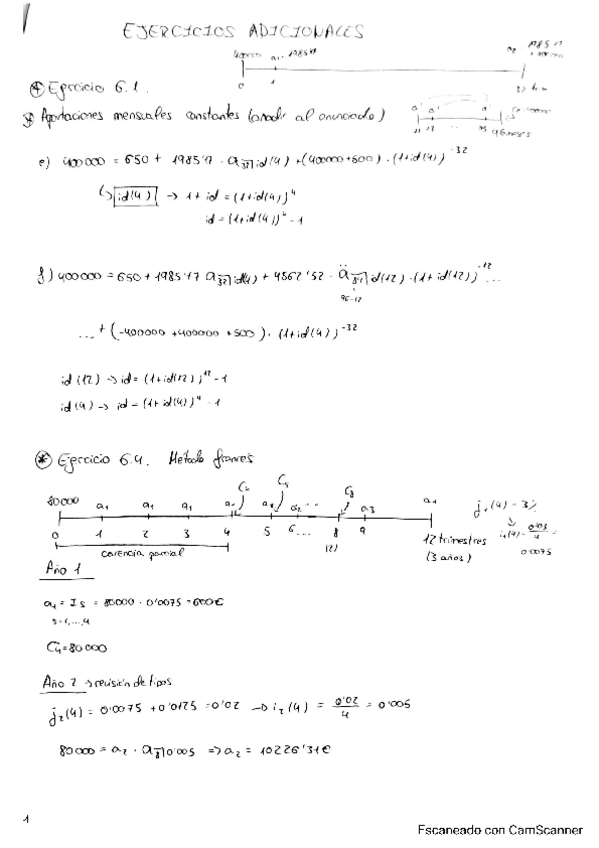 EJERCICIOS ADICIONALES
400000 a₁ = 1985'17
0 1 32 trim
* Ejercicio 6.1.
* Aportaciones mensuales constantes (añadir al enunciado)
96 meses
e) 400000 = 650 + 1985'17 · a32| id(4) + (400000+500) · (1+id(4))^-32
↳ id(4) → 1+id = (1+id(4))^4
id = (1+id(4))^4 - 1
f) 400000 = 650 + 1985'17 a32| id(4) + 4562'52 · ä84| id(12) · (1+id(12))^-12 ...
96-12
... + (-400000 + 400000 + 500) · (1+id(4))^-32
id(12) → id = (1+id(12))^12 - 1
id(4) → id = (1+id(4))^4 - 1
* Ejercicio 6.4. Método francés
C₄ C₅ C₈
80000 a₁ a₁ a₁ a₁ a₂ a₂ ... a₃
0 1 2 3 4 5 6... 8 9 12 trimestres
(3 años)
carencia parcial
j₁(4) = 3%
i₁(4) = 0'03/4 = 0'0075
Año 1
a₁ = Is = 80000 · 0'0075 = 600€
s=1,...,4
C₄ = 80000
Año 2 → revisión de tipos
j₂(4) = 0'0075 + 0'0125 = 0'02 → i₂(4) = 0'02/4 = 0'005
80000 = a₂ · a8| 0'005 ⇒ a₂ = 10226'31€
1
Escaneado con CamScanner